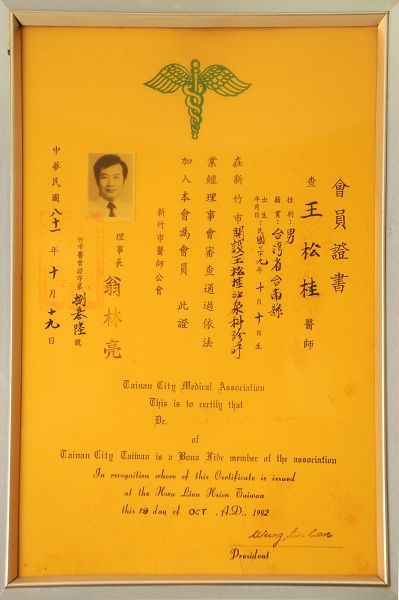 會員證書
查 王松桂 醫師
性別：男
籍貫：台灣省台南縣
出生年月日：民國二九年十月十日生
在新竹市開設王松桂泌尿科診所
業經理事會審查通過依法
加入本會為會員 此證
新竹市醫師公會
理事長 翁林亮
竹市醫會證字第 捌叁陸 號
中華民國八十一年十月十九日
Tainan City Medical Association
This is to certify that
Dr.
of
Tainan City Taiwan is a Bona Fide member of the association
In recognition where of this Certificate is issued
at the Hwa Lien Hsien Taiwan
this 19 day of OCT .A.D., 1992
President